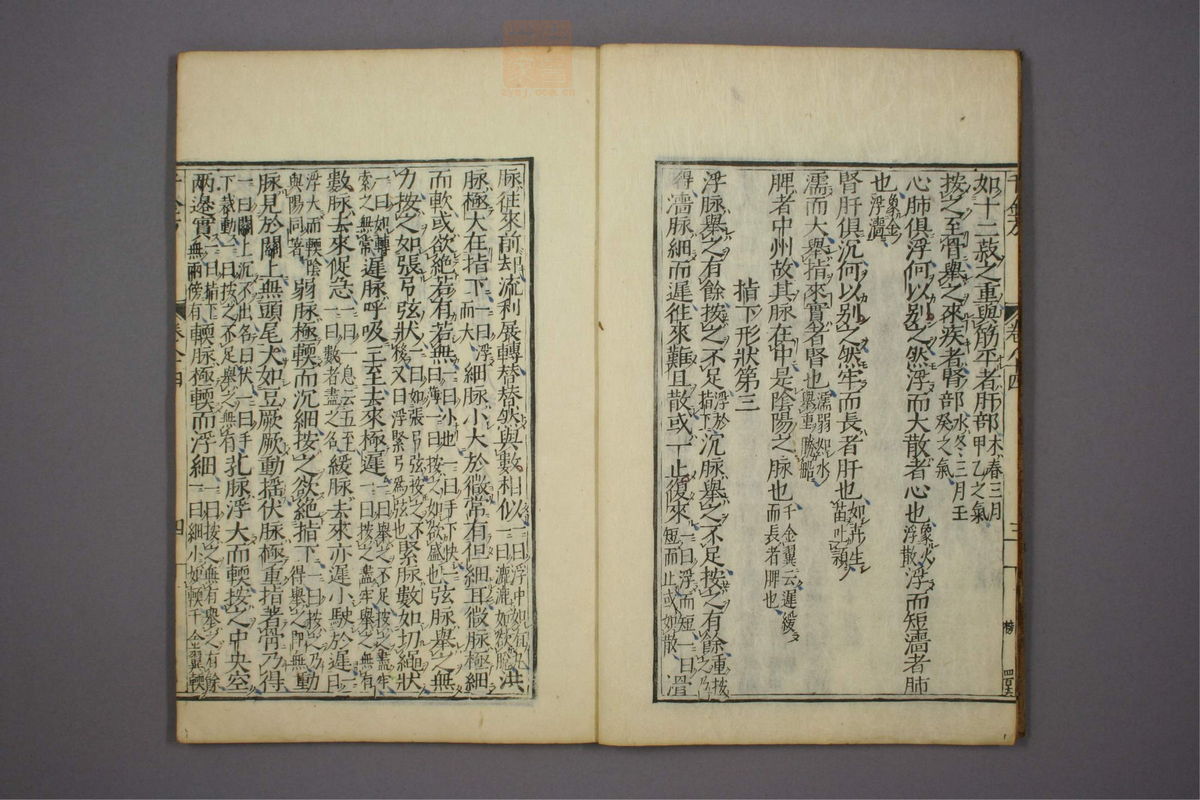 如十二菽之重與筋平者肝部木春三月甲乙之氣
按之至骨舉之來疾者腎部水冬三月壬癸之氣
心肺俱浮何以别之然浮而大散者心也象火浮散浮而短濇者肺
也象金浮濇
腎肝俱沉何以别之然牢而長者肝也如卉生苗吐頴
濡而大舉指來實者腎也濡弱如水舉重膽
脾者中州故其脉在中是陰陽之脉也千金翼云遲緩而長者脾也
指下形狀第三
浮脉舉之有餘按之不足浮於指下沉脉舉之不足按之有餘重按之乃
得濇脉細而遲徃來難且散或一止復來一曰浮而短一曰短而止或如散
脉徃來前却流利展轉替替然與數相似一曰浮中如有力一曰漉漉如欲脫洪
脉極大在指下一曰浮而大細脉小大於微常有但細耳微脉極細
而軟或欲絕若有若無一曰小也一曰手下快一曰薄一曰按之如欲盡也弦脉舉之無
力按之如張弓弦狀一曰如張弓弦按之不移又曰浮緊弓爲弦也緊脉數如切繩狀
一曰如轉索之無常遲脉呼吸三至去來極遲一曰舉之不足按之盡牢一曰按之盡牢舉之無有
數脉去來促急一曰一息云五至一曰數者盡之名緩脉去來亦遲小駛於遲一曰
浮大而輭陰與陽同等弱脉極輭而沉細按之欲絕指下一曰按之乃得舉之即無動
脉見於關上無頭尾大如豆厥厥動摇伏脉極重指著骨乃得
一曰關上沉不出名曰伏一曰手下裁動一曰按之不足舉之無有芤脉浮大而輭按之中央空
兩邊實一曰指下無兩傍有輭脉極輭而浮細一曰按之無有舉之有餘一曰細小如輭千金翼輭
卷八
四
三